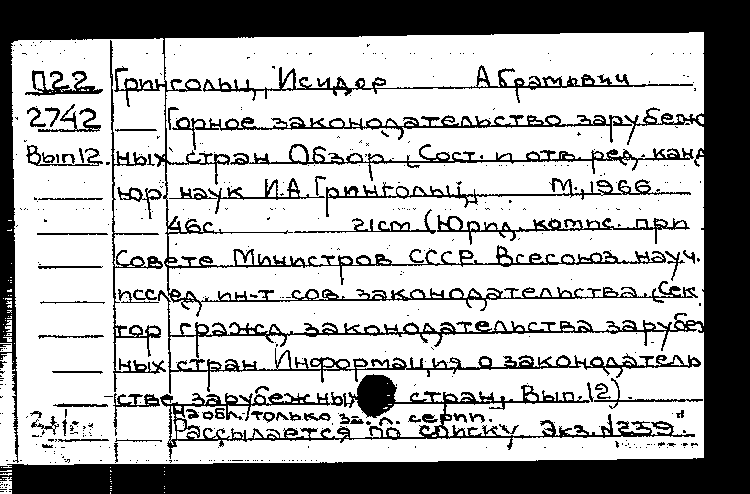 П22 Грингольц, Исидор Абрамович
2742 Горное законодательство зарубеж
Вып 12. ных стран Обзор. (Сост. и отв. ред. канд
юр. наук И.А. Грингольц, М., 1966.
46с. 21см (Юрид. комис. при
Совете Министров СССР. Всесоюз. науч.
исслед. ин-т сов. законодательства. (Сек
тор гражд. законодательства зарубеж
ных стран Информация о законодатель
стве зарубежных стран, Вып. 12).
На обл. только серии.
Рассылается по списку Экз. №239"